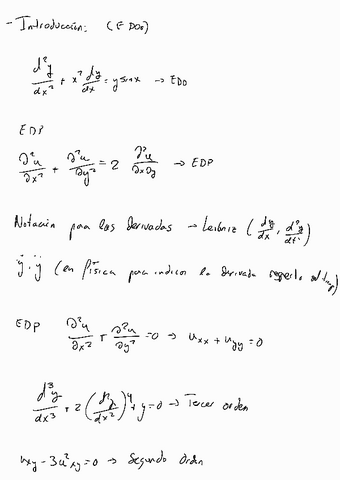 - Introducción: (EDOs)
d²y/dx² + x² dy/dx = y sinx → EDO
EDP
∂²u/∂x² + ∂²u/∂y² = 2 ∂²u/∂x∂y → EDP
Notación para las derivadas → Leibniz (dy/dx, d²y/dt²)
ẏ, ÿ (en física para indicar la derivada respecto al
EDP ∂²u/∂x² + ∂²u/∂y² = 0 → uxx + uyy = 0
d³y/dx³ + 2(d²y/dx²)⁴ + y = 0 → Tercer orden
uxy - 3u²xy = 0 → Segundo Orden